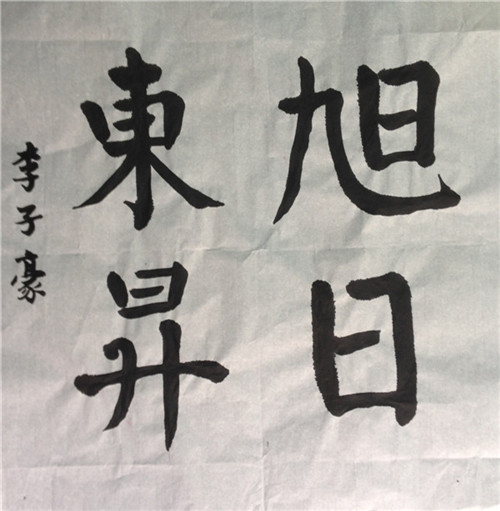 旭日
東昇
李子豪